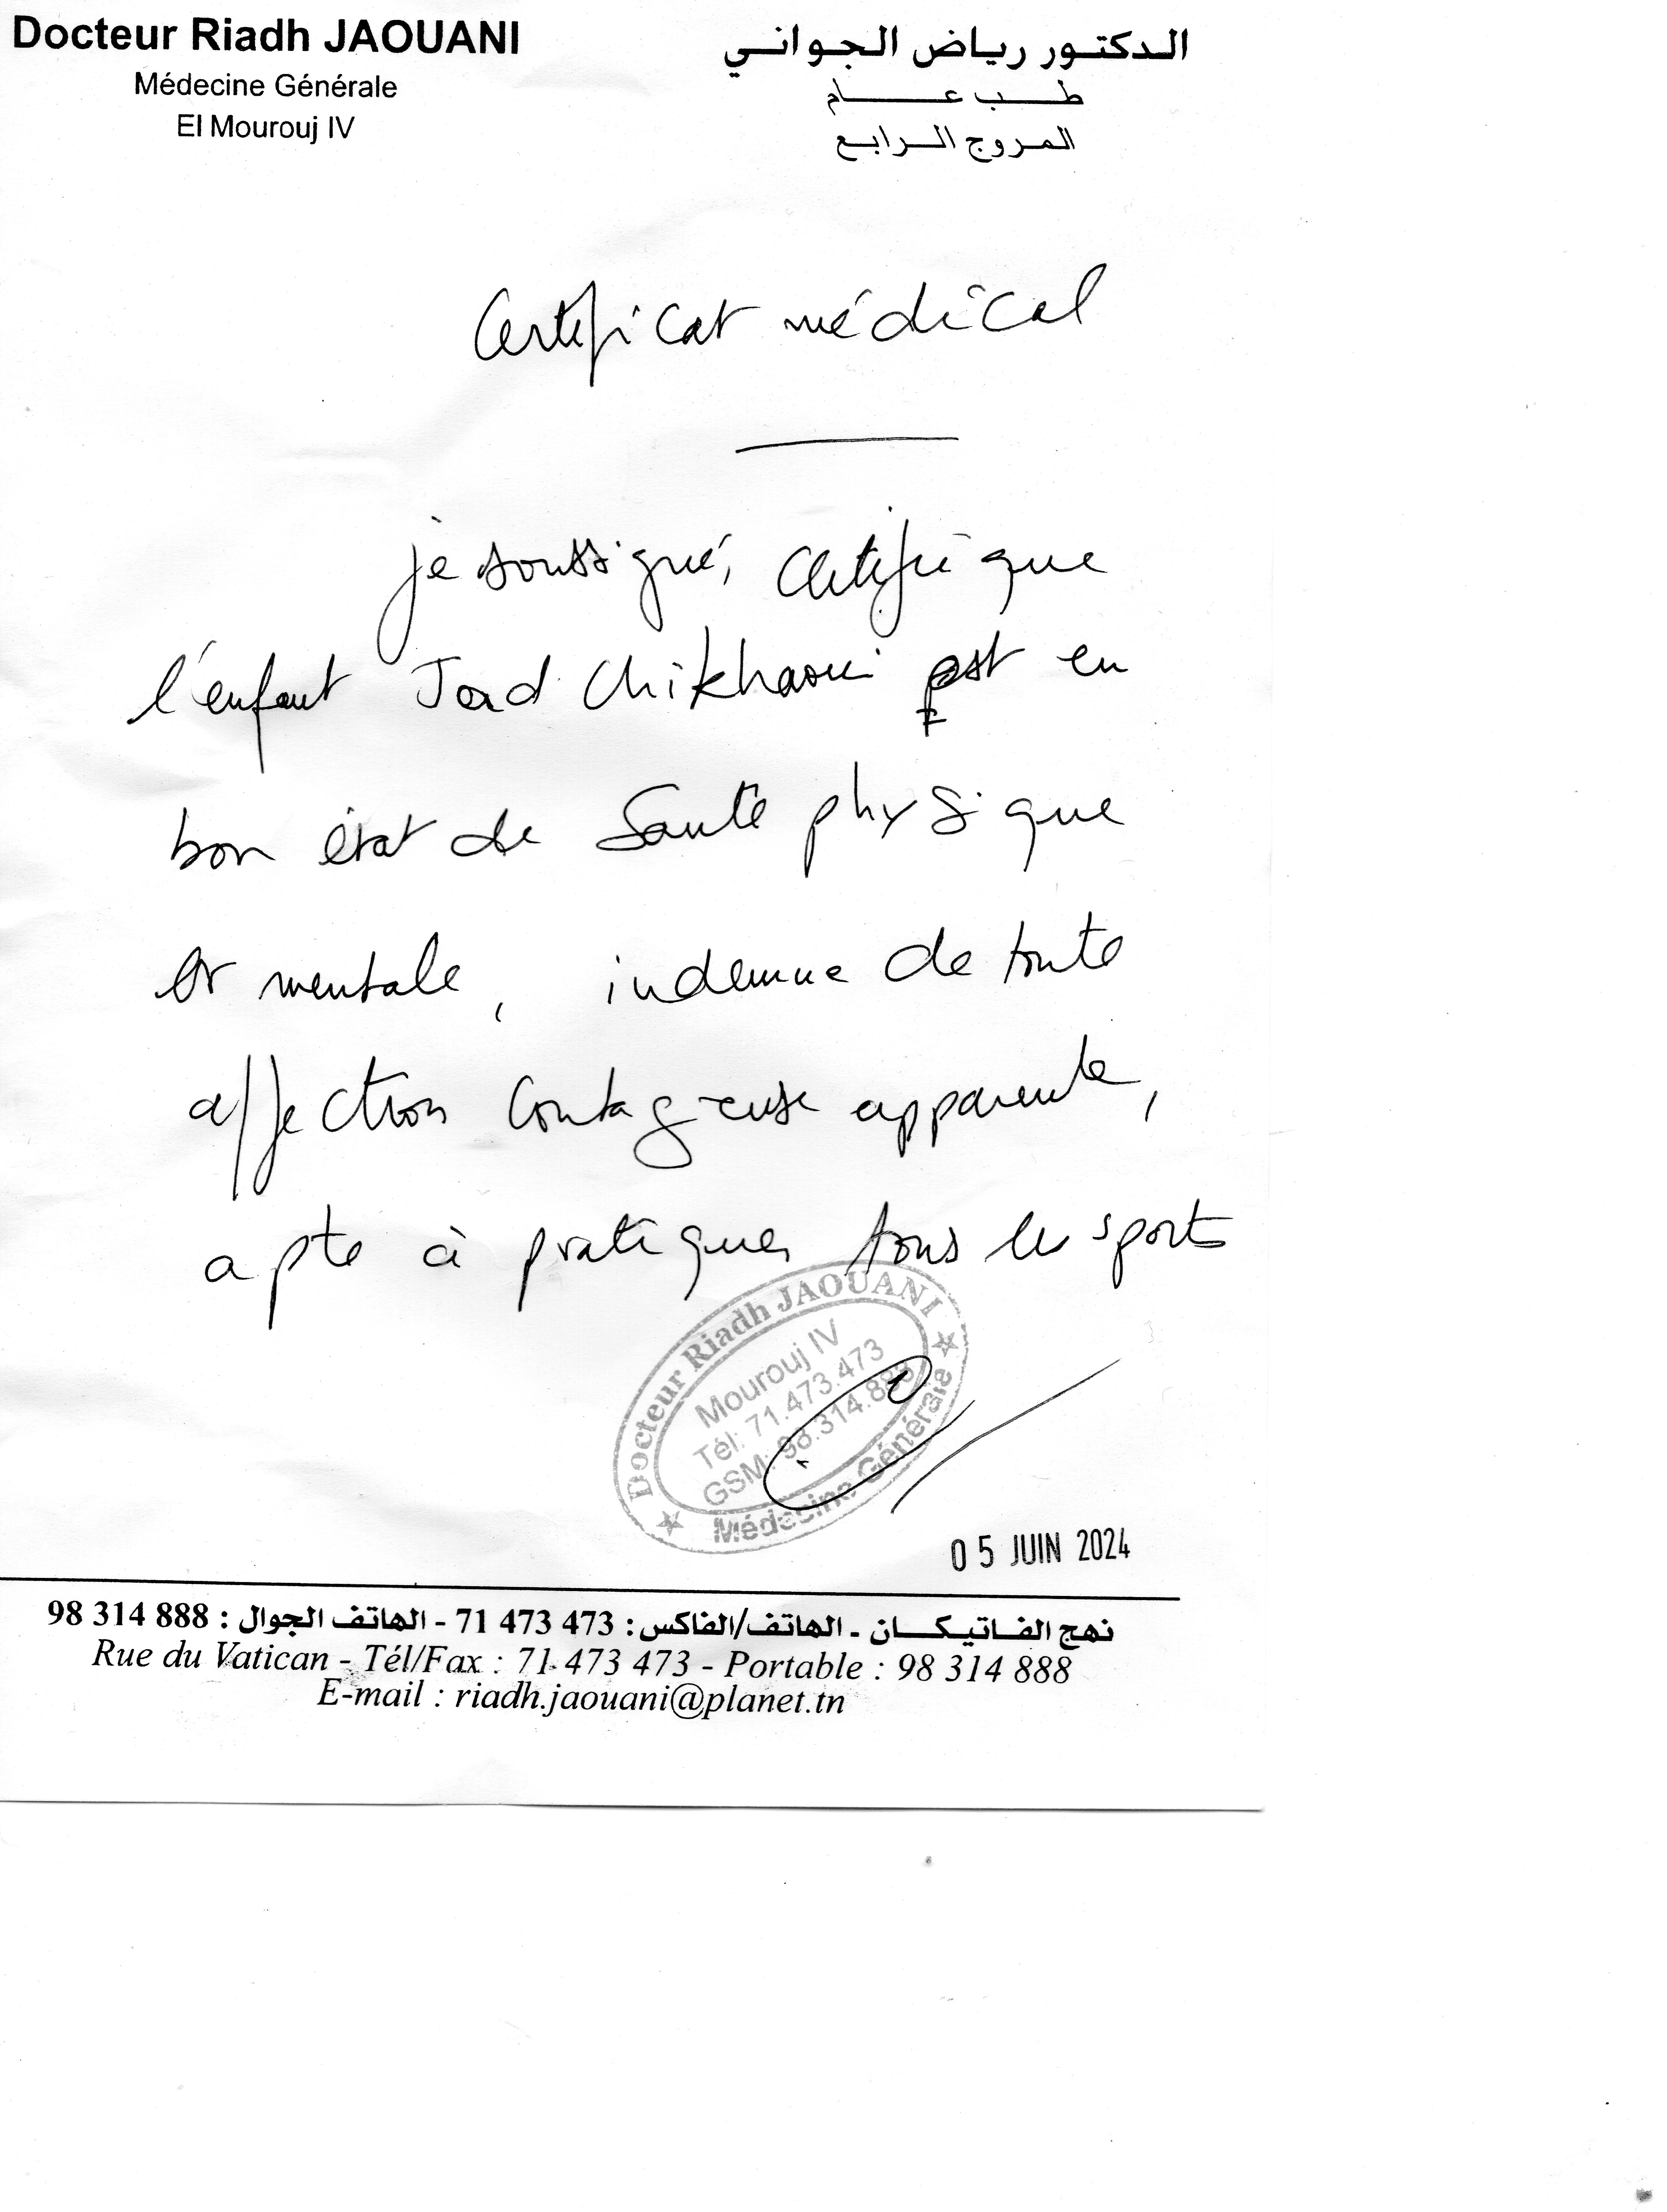 Docteur Riadh JAOUANI
Médecine Générale
El Mourouj IV
الدكتور رياض الجواني
طب عام
المروج الرابع
Certificat médical
je soussigné, certifie que
l'enfant Jad Chikhaoui est en
bon état de santé physique
et mentale, indemne de toute
affection contagieuse apparente,
apte à pratiquer tous les sports
Docteur Riadh JAOUANI
Mourouj IV
Tél: 71.473.473
GSM: 98.314.888
Médecine Générale
05 JUIN 2024
نهج الفاتيكان - الهاتف/الفاكس : 473 473 71 - الهاتف الجوال : 888 314 98
Rue du Vatican - Tél/Fax : 71 473 473 - Portable : 98 314 888
E-mail : riadh.jaouani@planet.tn